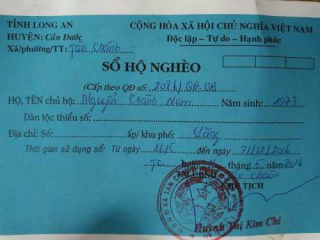 TỈNH LONG AN
CỘNG HÒA XÃ HỘI CHỦ NGHĨA VIỆT NAM
HUYỆN: Cần Đước
Độc lập - Tự do - Hạnh phúc
Xã/phường/TT: Tân Chánh
SỔ HỘ NGHÈO
(Cấp theo QĐ số: /QĐ.UB
HỌ, TÊN chủ hộ: Nguyễn Chánh Nam Năm sinh: 1973
Dân tộc thiểu số:
Địa chỉ: Số: ấp/khu phố: Lăng
Thời gian sử dụng sổ: Từ ngày đến ngày 31/12/2016
tháng 5 2016
CHỦ TỊCH
Huỳnh Thị Kim Chi